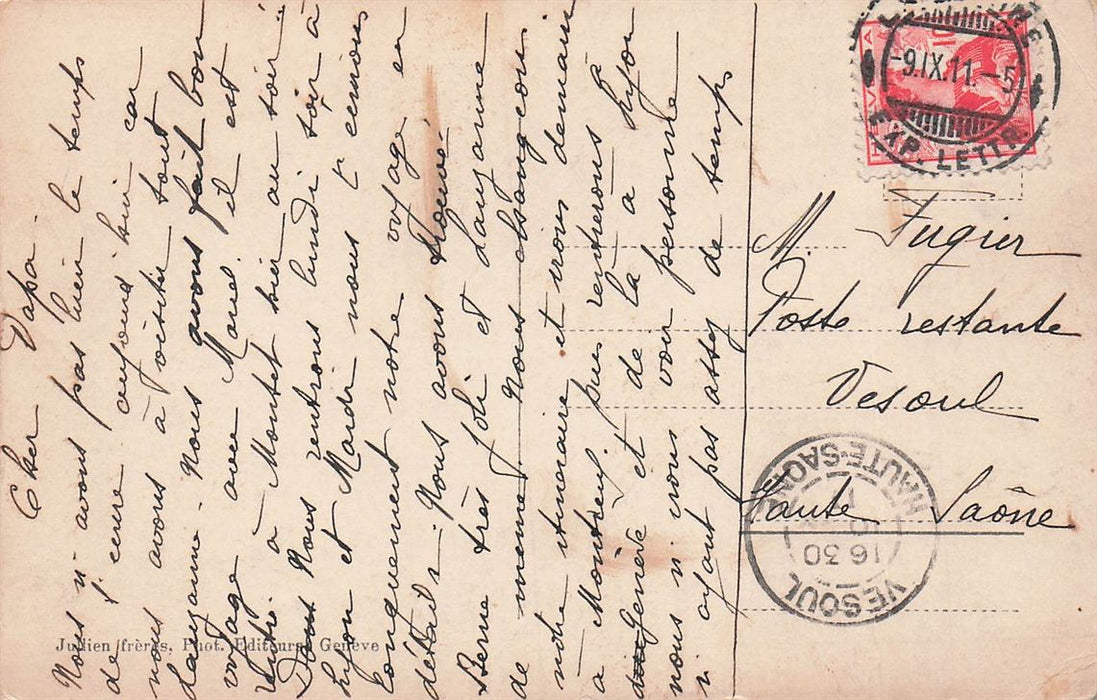 Cher Papa
Nous n'avons pas bien le temps
de t'écrire aujourd'hui car
nous avons à visiter tout
Lausanne. Nous avons fait bon
voyage avec Marie il est
à Montet hier au soir
Nous rentrons lundi soir à
Lyon et Mardi nous t'écrirons
longuement notre voyage en
détails. Nous avons trouvé
Berne très joli et Lausanne
de même. Nous changeons
notre itinéraire et irons demain
à Montreux puis rentrerons à
Genève et de là à Lyon
nous n'irons voir personne
n'ayant pas assez de temps
M. Fugier
Poste restante
Vesoul
Haute Saône
HELVETIA
10
-9.IX.11.-5
EXP. LETTR.
VESOUL
HAUTE-SAONE
16 30
10
Jullien frères, Phot. Editeurs, Genève